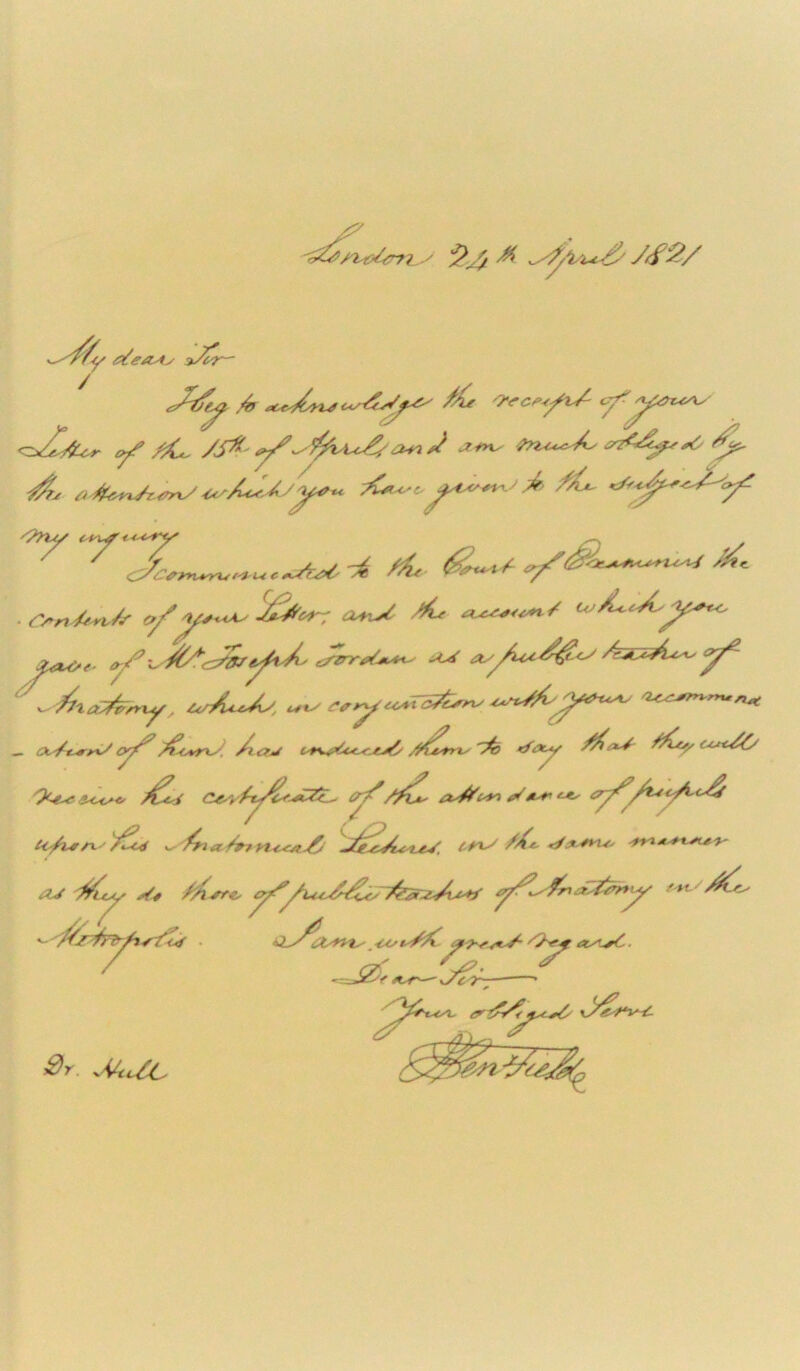 London 24th April 1821
My dear Sir
I beg to acknowledge the receipt of your
Letter of the 15th of April, and am much obliged by
the attention which you have given to the subject of
my enquiry
I communicated to the Court of Examiners the
Contents of your Letter; and the account which you
gave of Mr. Joseph Jordan as a public teacher of
Anatomy, which, in conjunction with your recommend
ation of him, has induced them to say that they will
receive his Certificate of the attendance of pupils
upon his Anatomical Lectures, in the same manner
as they do those of public teachers of Anatomy in the
Metropolis. I am, with great regard
Dear Sir,
Your obliged Servt
Dr. Hull